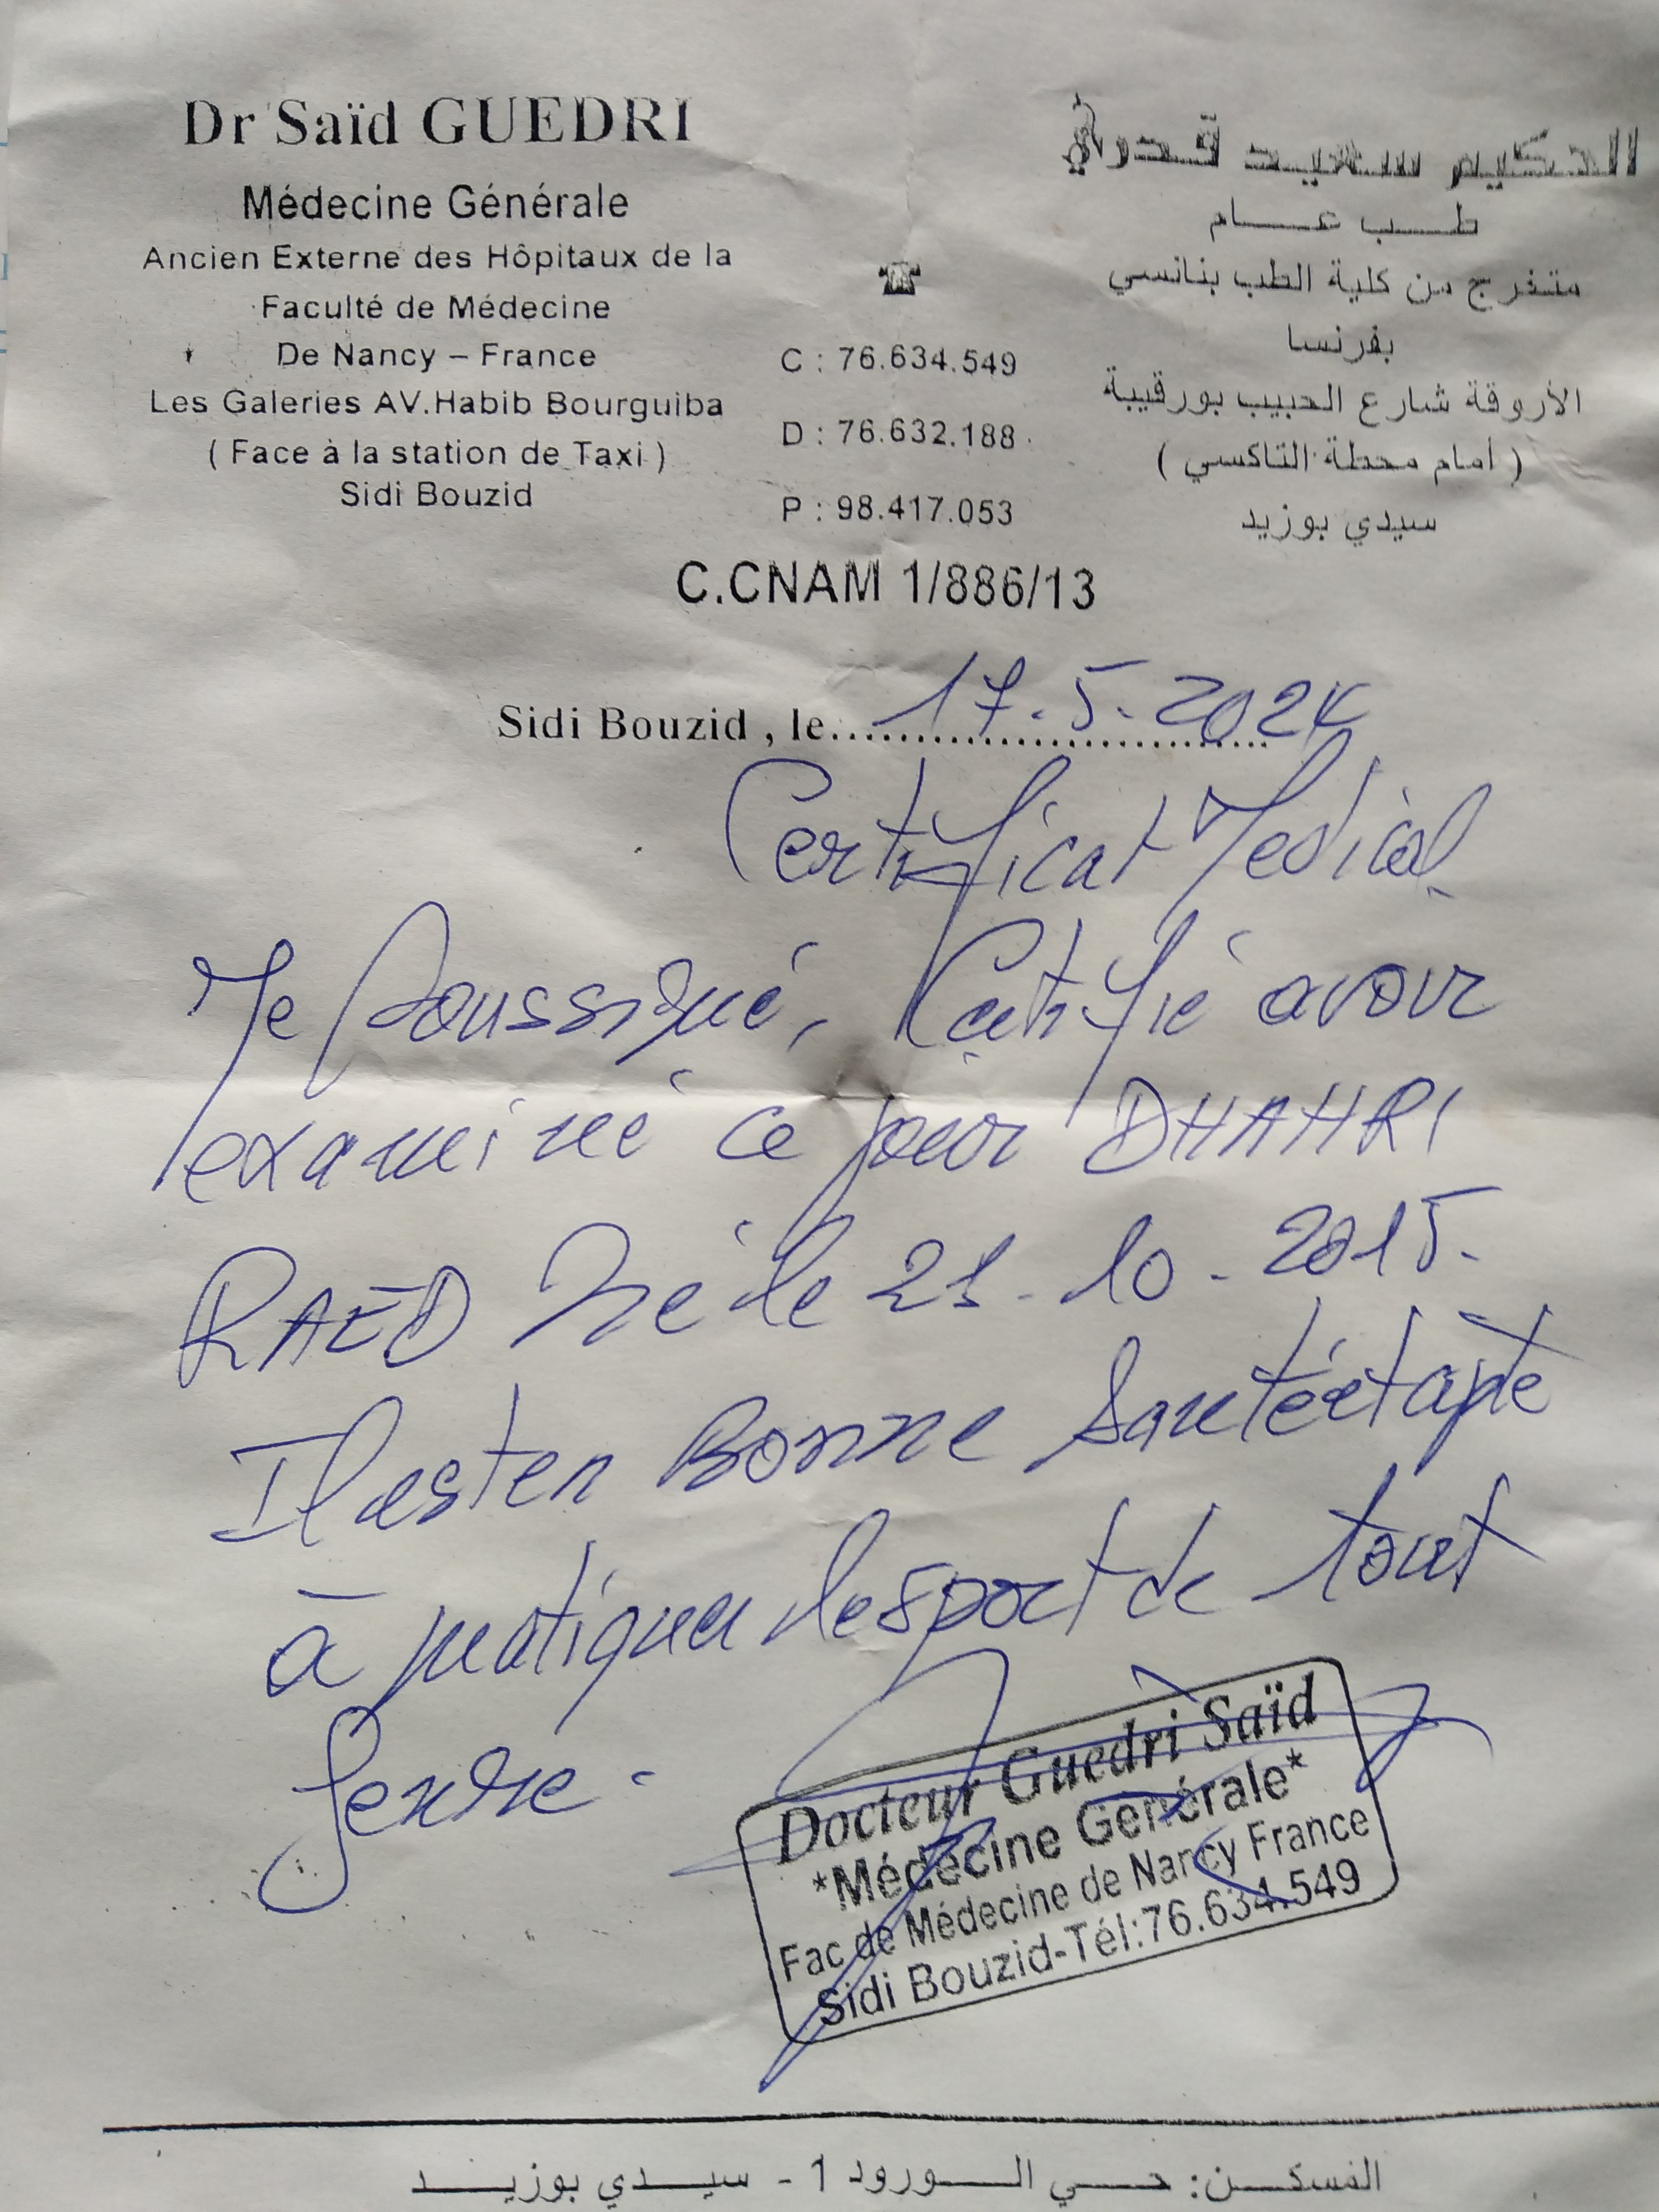 Dr Saïd GUEDRI
Médecine Générale
Ancien Externe des Hôpitaux de la
Faculté de Médecine
De Nancy – France
Les Galeries AV.Habib Bourguiba
( Face à la station de Taxi )
Sidi Bouzid
☎
C : 76.634.549
D : 76.632.188
P : 98.417.053
الحكيم سعيد قدري
طب عام
متخرج من كلية الطب بنانسي
بفرنسا
الأروقة شارع الحبيب بورقيبة
( أمام محطة التاكسي )
سيدي بوزيد
C.CNAM 1/886/13
Sidi Bouzid , le 17.5.2024
Certificat Medical
Je soussigné, Certifié avoir
examiné ce jour DHAHRI
RAED Né le 21.10.2015.
Il est en Bonne Santé et apte
à pratiquer le sport de tout
genre.
Docteur Guedri Saïd
*Médecine Générale*
Fac de Médecine de Nancy France
Sidi Bouzid-Tél:76.634.549
المسكن: حي الورود 1 - سيدي بوزيد